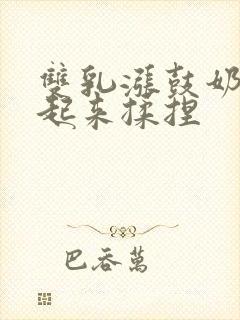 雙乳漲鼓奶
起来揉捏
巴吞萬